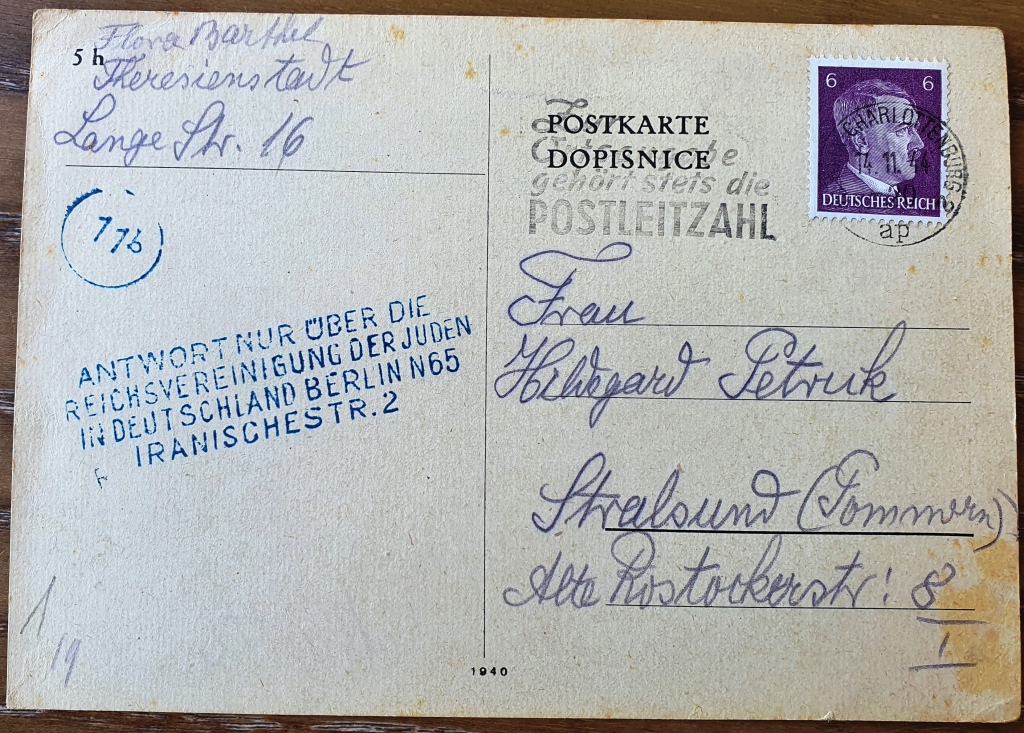 5 h
Flora Barthel
Theresienstadt
Lange Str. 16
POSTKARTE
DOPISNICE
gehört stets die
POSTLEITZAHL
6 6
DEUTSCHES REICH
CHARLOTTENBURG 2
14.11.44
ap
Frau
Hildegard Petruk
Stralsund (Pommern)
Alte Rostockerstr. 8
I
ANTWORT NUR ÜBER DIE
REICHSVEREINIGUNG DER JUDEN
IN DEUTSCHLAND BERLIN N65
IRANISCHESTR. 2
1940
19